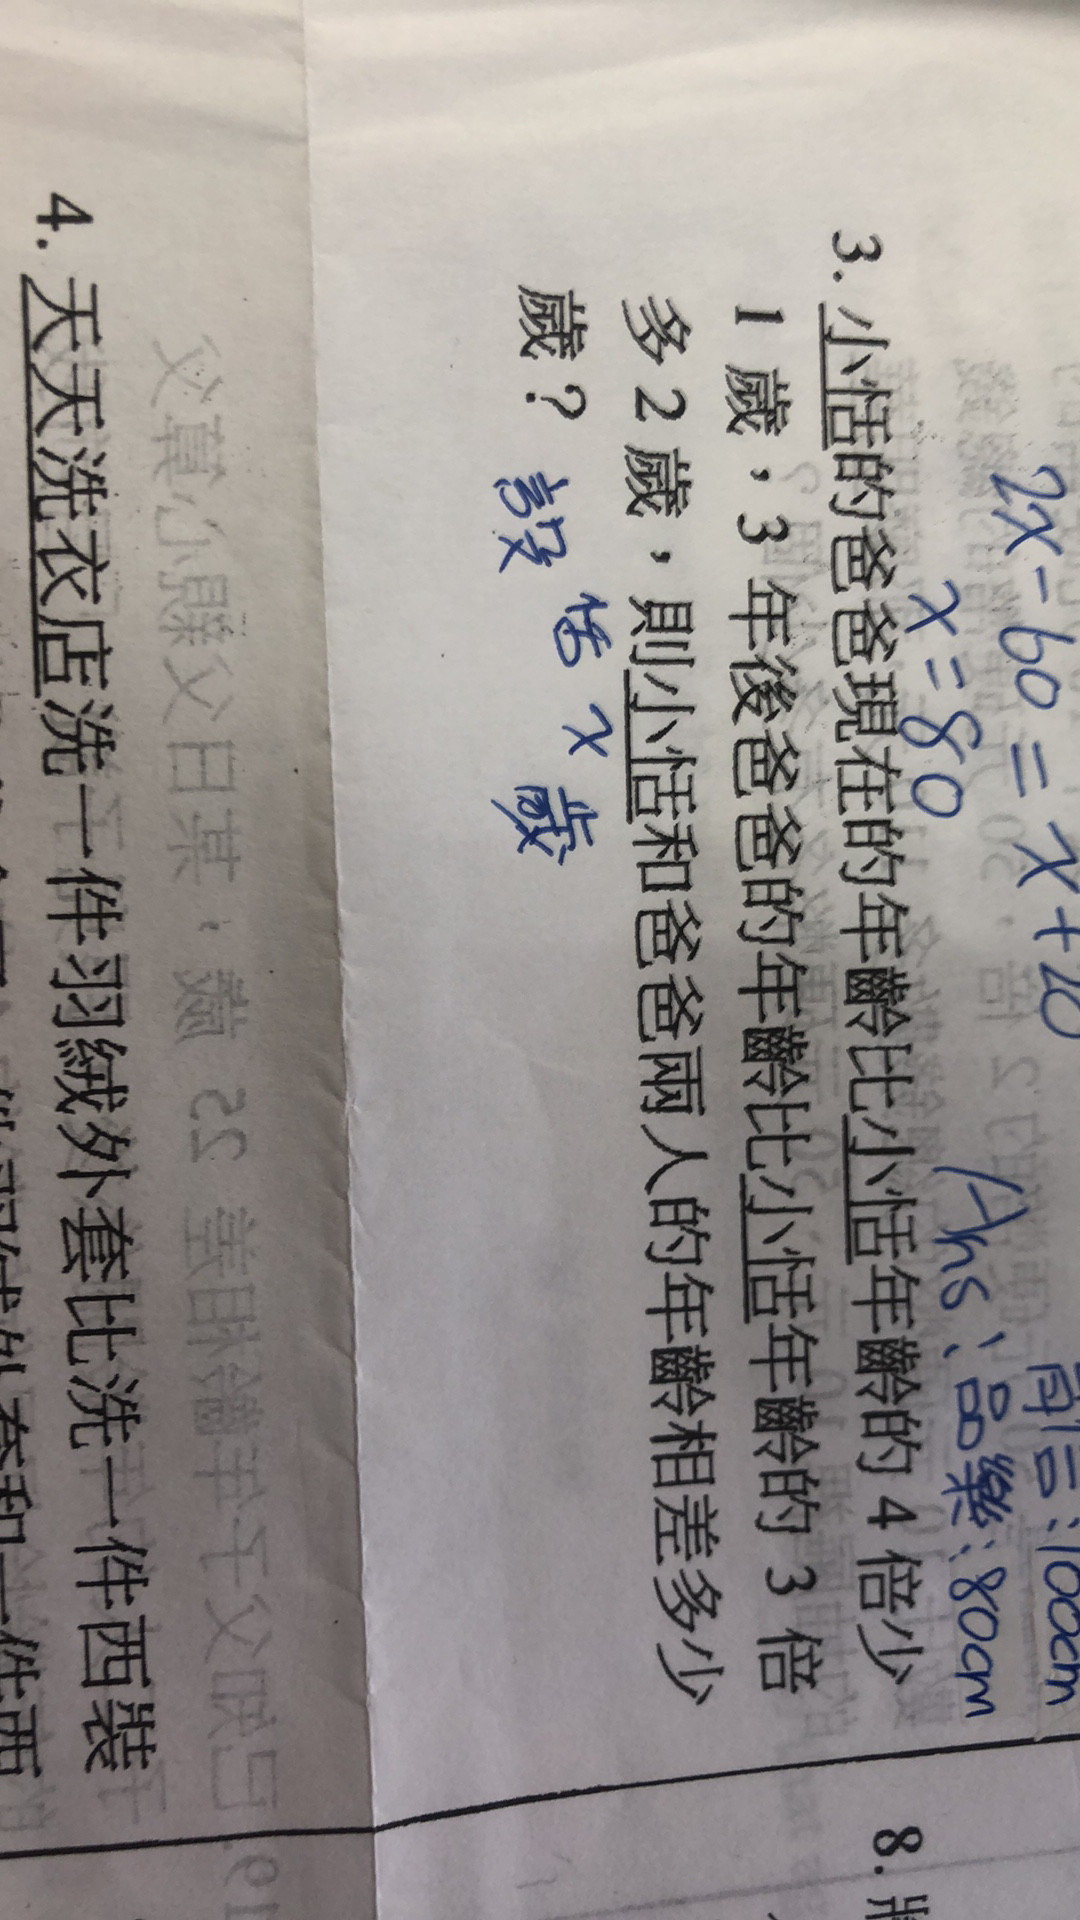 2x-60=x+20
x=80
前言:100cm
Ans、品樂:80cm
3.小恬的爸爸現在的年齡比小恬年齡的4倍少
1歲,3年後爸爸的年齡比小恬年齡的3倍
多2歲,則小恬和爸爸兩人的年齡相差多少
歲?
設恬x歲
4.天天洗衣店洗一件羽絨外套比洗一件西裝
8.